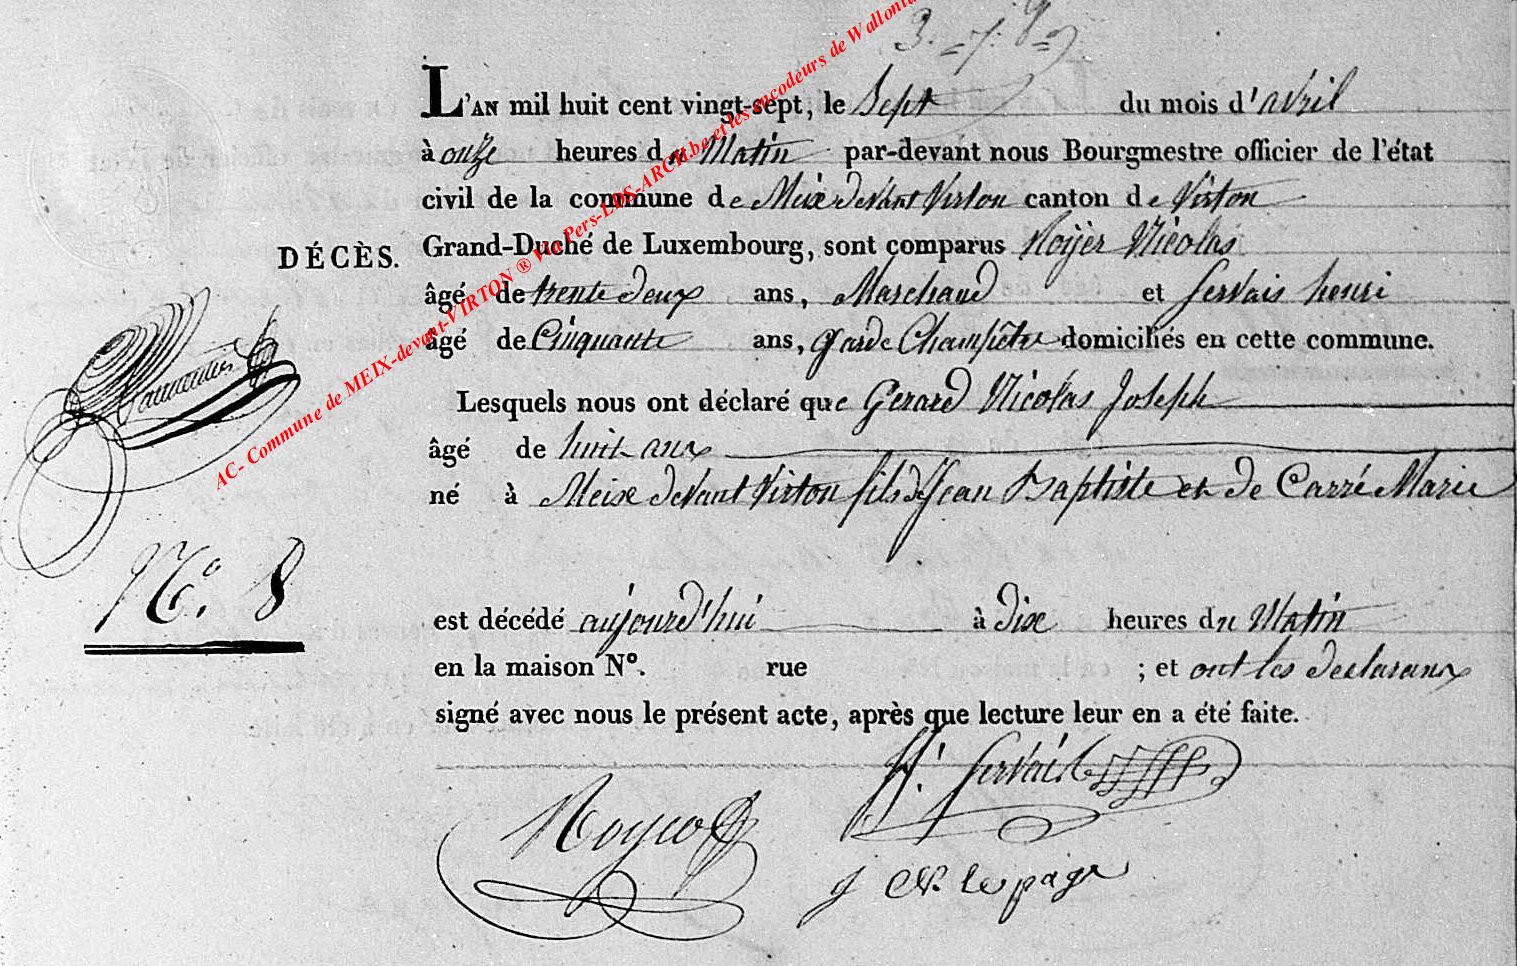 L'AN mil huit cent vingt-sept, le Sept du mois d'avril
à onze heures du Matin par-devant nous Bourgmestre officier de l'état
civil de la commune de Meix devant Virton canton de Virton
DÉCÈS. Grand-Duché de Luxembourg, sont comparus Noÿèr Nicolas
âgé de trente deux ans, Marchand et Servais henri
âgé de Cinquante ans, garde Champêtre domiciliés en cette commune.
Lesquels nous ont déclaré que Gerard Nicolas Joseph
âgé de huit ans
né à Meix devant Virton fils de Jean Baptiste et de Carré Marie
N.º 8
est décédé aujourd'hui à dix heures du Matin
en la maison Nº. rue ; et ont les declarans
signé avec nous le présent acte, après que lecture leur en a été faite.
H. Servais
J Ch. lepage
AC- Commune de MEIX-devant-VIRTON ® Via Pers-LDS-ARCH.be et les encodeurs de Walloni